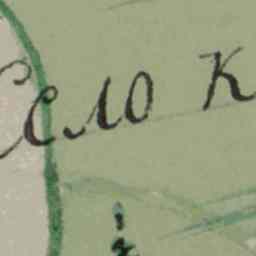 Село К